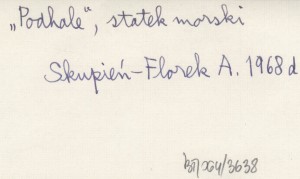 „Podhale”, statek morski
Skupień-Florek A. 1968 d
/3638